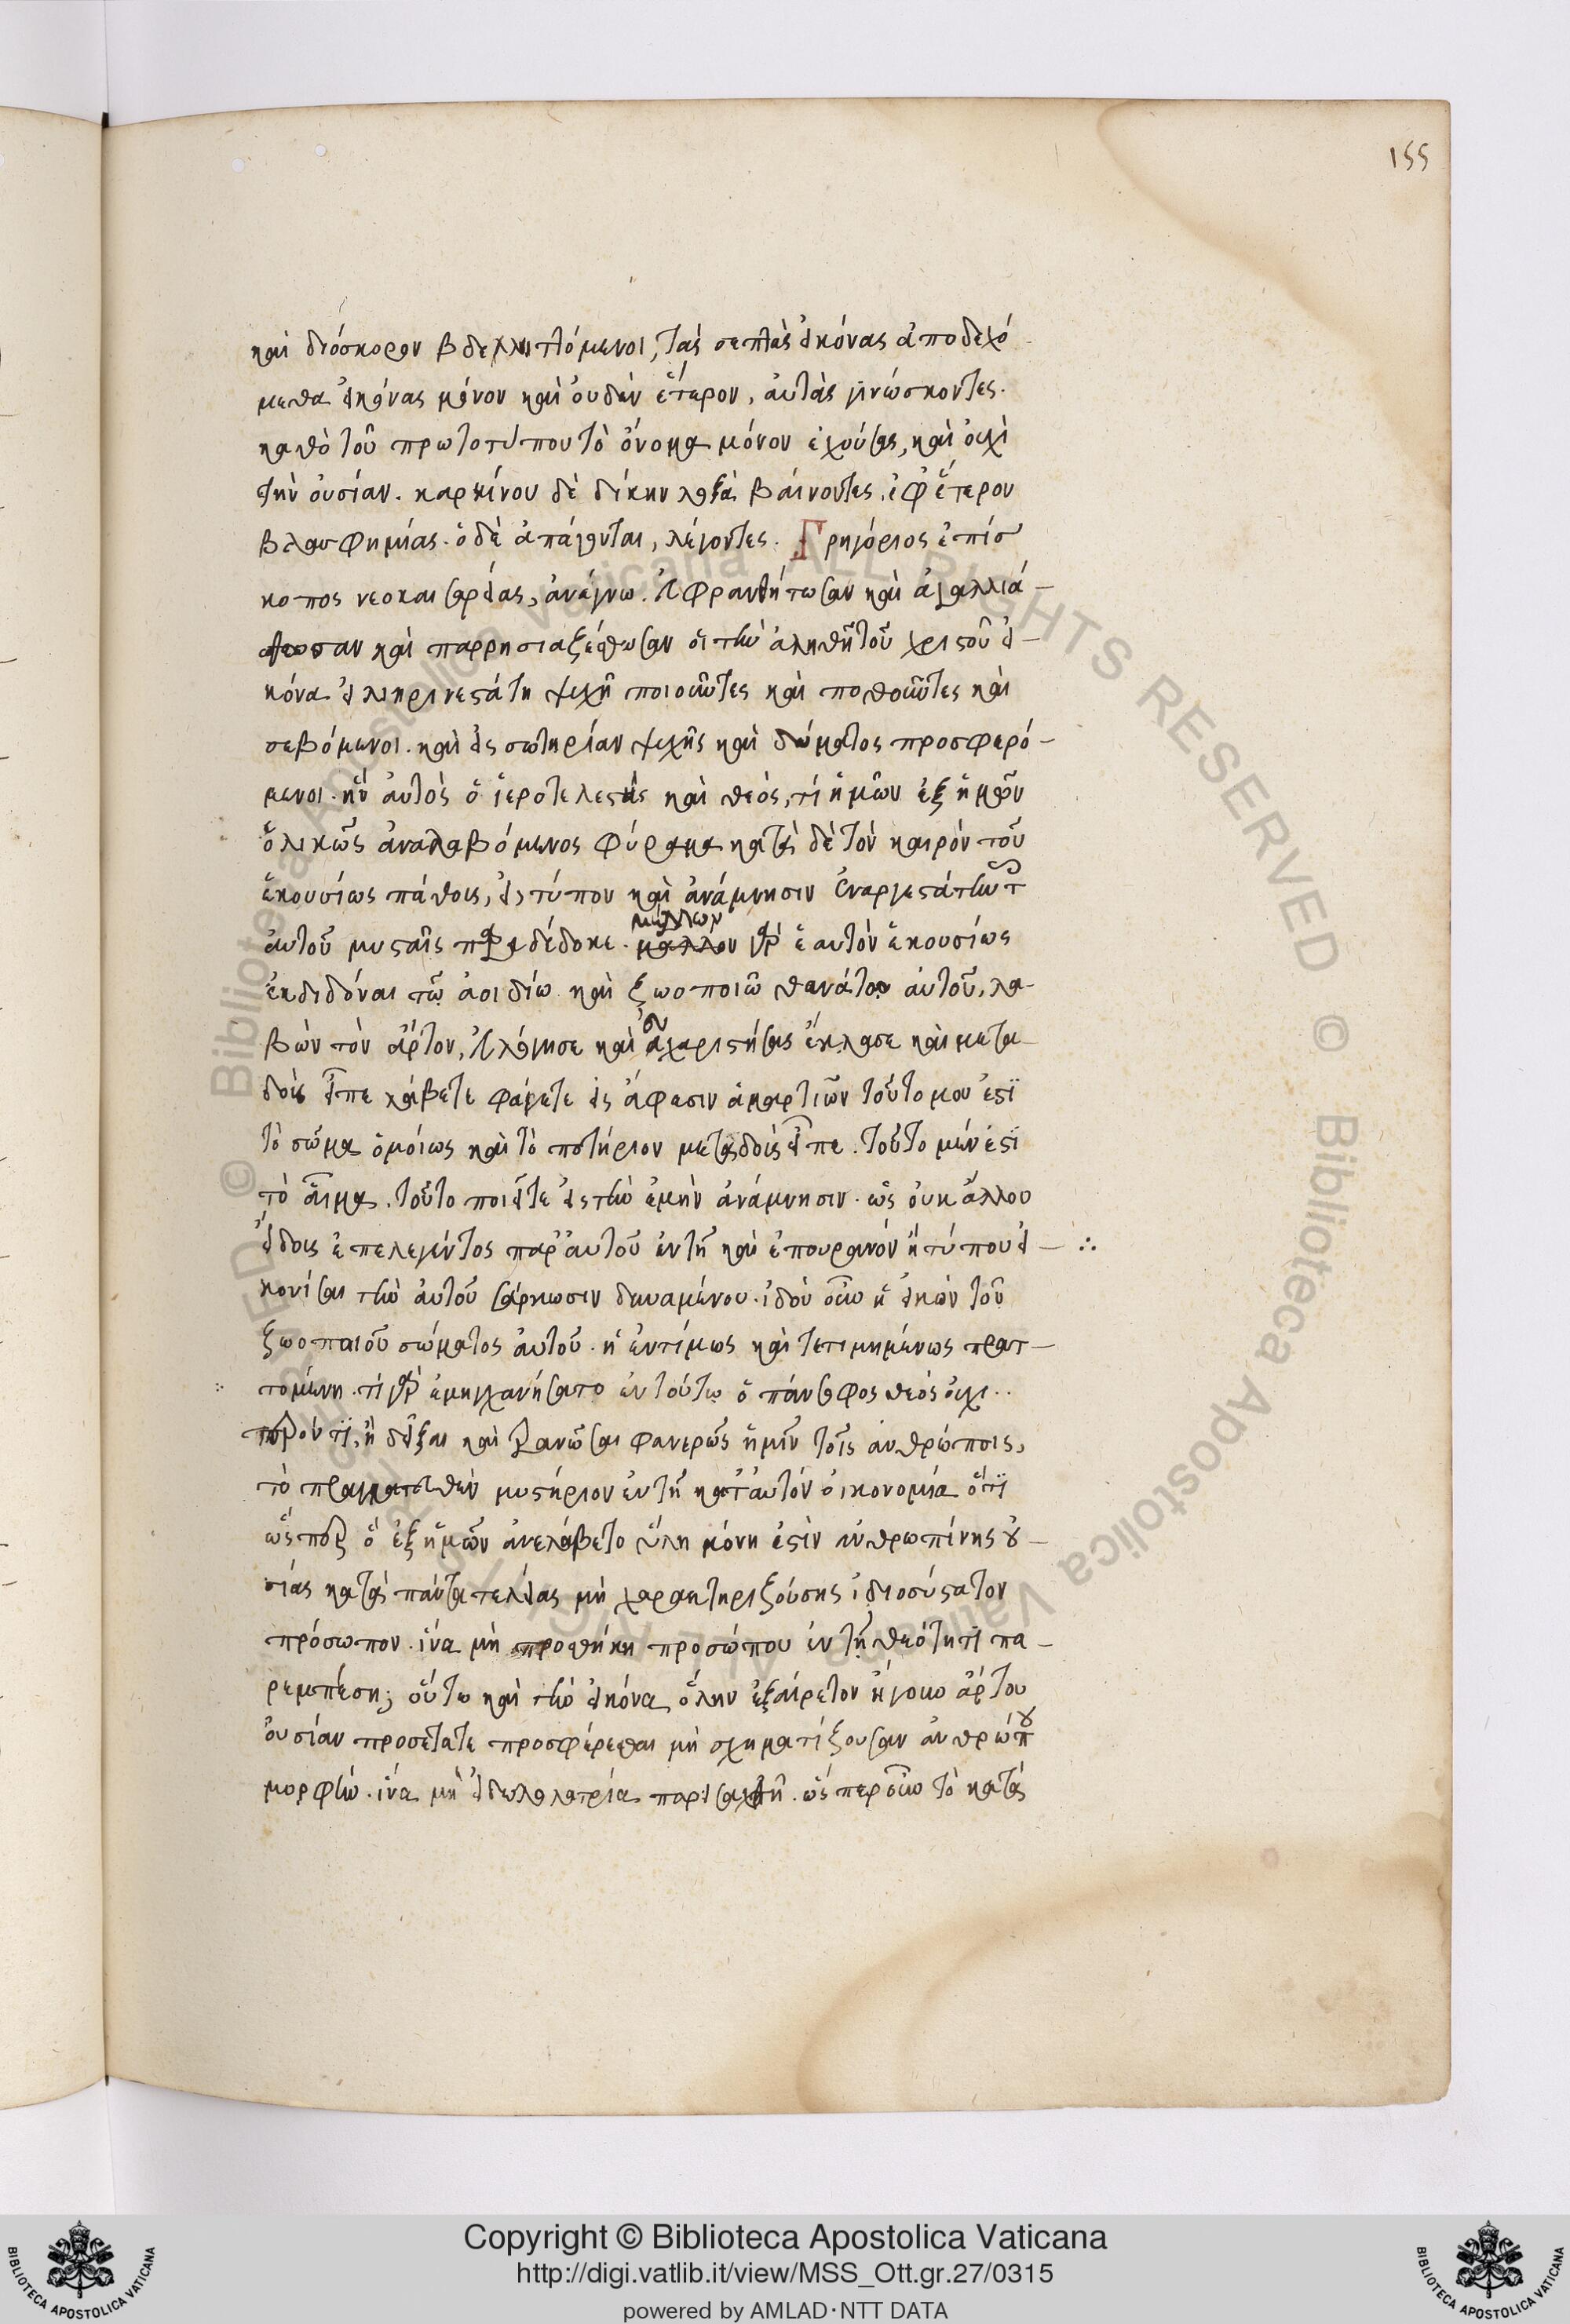 155
καὶ διόσκορον βδελυττόμενοι, τὰς σεπτὰς εἰκόνας ἀποδεχό
μεθα εἰκόνας μόνον καὶ οὐδὲν ἕτερον, αὐτὰς γινώσκοντες.
καθὸ τοῦ πρωτοτύπου τὸ ὄνομα μόνον ἐχούσας, καὶ οὐχὶ
τὴν οὐσίαν. καρκίνου δὲ δίκην λοξὰ βαίνοντες, ἐφ ἕτερον
βλασφημίας. ὁδὲ ἀπάγονται, λέγοντες. Γρηγόριος ἐπίσ
κοπος νεοκαισαρείας, ἀνέγνω. εὐφρανθήτωσαν καὶ ἀγαλλιά–
σθωσαν καὶ παρρησιαζέσθωσαν οἱ τὴν ἀληθῆ τοῦ χριστοῦ εἰ–
κόνα εἰλικρινεστάτη ψυχῆ ποιοῦντες καὶ ποθοῦντες καὶ
σεβόμενοι. καὶ εἰς σωτηρίαν ψυχῆς καὶ σώματος προσφερό–
μενοι. ἣν αὐτὸς ὁ ἱεροτελεστὴς καὶ θεός, τὶ ἡμῶν ἐξ ἡμῶν
ὁλικῶς ἀναλαβόμενος φύραμα κατὰ δὲ τὸν καιρὸν τοῦ
ἑκουσίως πάθους, εἰς τύπον καὶ ἀνάμνησιν ἐναργεστάτην τ
αὐτοῦ μύσταις παραδέδοκε. μέλλων γὰρ ἑαυτὸν ἑκουσίως
ἐκδιδόναι τῶ ἀοιδίω καὶ ζωοποιῶ θανάτω αὐτοῦ, λα–
βὼν τὸν ἄρτον, εὐλόγησε καὶ εὐχαριστήσας ἔκλασε καὶ μετα–
δοὺς εἶπε λάβετε φάγετε εἰς ἄφεσιν ἁμαρτιῶν τοῦτο μου ἐστὶ
τὸ σῶμα ὁμοίως καὶ τὸ ποτήριον μεταδοὺς εἶπε. τοῦτο μέν ἐστὶ
τὸ αἷμα. τοῦτο ποιεῖτε εἰς τὴν ἐμὴν ἀνάμνησιν. ὡς οὐκ ἄλλου
εἴδους ἐπελεγέντος παρ' αὐτοῦ ἐν τῆ καὶ ἐπουρανόν ἢ τύπου εἰ– ∴
κονίσαι τὴν αὐτοῦ σάρκωσιν δυναμένου. ἰδοὺ οὖν ἡ εἰκὼν τοῦ
ζωοποιοῦ σώματος αὐτοῦ. ἡ ἐντίμως καὶ τετιμημένως πρατ–
τομένη. τί γὰρ ἐμηχανήσατο ἐν τούτω ὁ πάνσοφος θεός οὐχ..
ἕτερόν τι, ἢ δεῖξαι καὶ τρανῶσαι φανερῶς ἡμῖν τοῖς ἀνθρώποις,
τὸ πραγματευθὲν μυστήριον ἐν τῆ κατ' αὐτὸν οἰκονομία ὅτι
ὥσπερ ὃ ἐξ ἡμῶν ἀνελάβετο ὕλη μόνη ἐστὶν ἀνθρωπίνης οὐ–
σίας κατὰ πάντα τελείας μὴ χαρακτηριζούσης ἰδιοσύστατον
πρόσωπον. ἵνα μὴ προσθήκη προσώπου ἐν τῆ θεότητι πα–
ρεμπέση; οὕτω καὶ τὴν εἰκόνα ὅλην ἐξαίρετον ἤγουν ἄρτου
οὐσίαν προσέτατε προσφέρεσθαι μὴ σχηματίζουσαν ἀνθρώπου
μορφὴν. ἵνα μὴ εἰδωλολατρία παρεισαχθῆ. ὥσπερ οὖν τὸ κατὰ
Copyright © Biblioteca Apostolica Vaticana
http://digi.vatlib.it/view/MSS_Ott.gr.27/0315
powered by AMLAD·NTT DATA